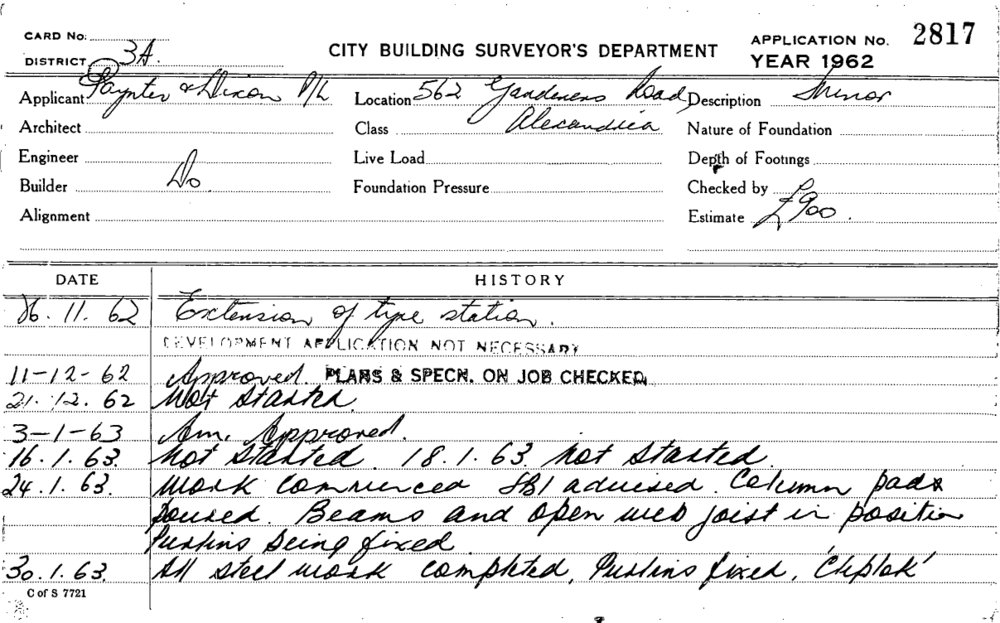 CARD No.
DISTRICT 3A.
CITY BUILDING SURVEYOR'S DEPARTMENT
APPLICATION No. 2817
YEAR 1962
Applicant Paynter & Dixon P/L Location 562 Gardeners Road Description Minor
Architect Class Alexandria Nature of Foundation
Engineer Live Load Depth of Footings
Builder Do Foundation Pressure Checked by
Alignment Estimate £900.
DATE HISTORY
26.11.62 Extension of type station.
DEVELOPMENT APPLICATION NOT NECESSARY
11-12-62 Approved. PLANS & SPECN. ON JOB CHECKED
21.12.62 Not Started
3-1-63 Am. Approved.
16.1.63. Not Started. 18.1.63 Not Started
24.1.63. Work commenced SBI advised. Column pads
poured. Beams and open web joist in position
Purlins being fixed
30.1.63. All steel work completed, Purlins fixed, 'Cliplok'
C of S 7721